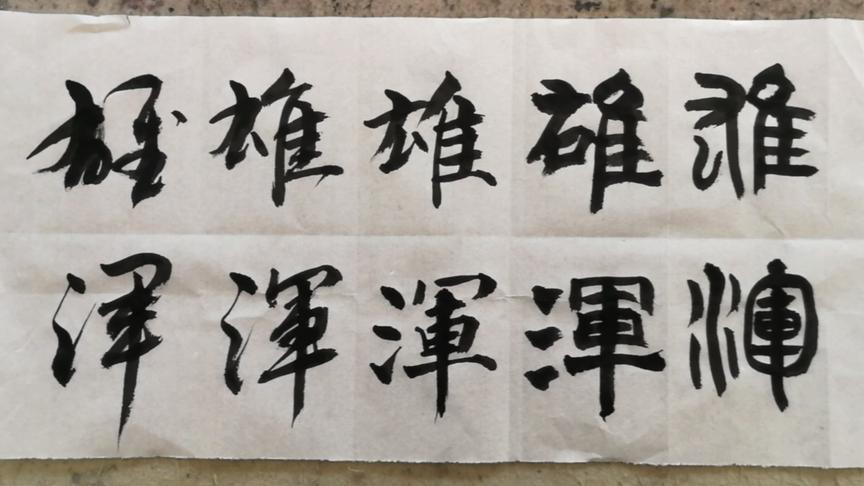 雄雄雄雄雄
渾渾渾渾渾